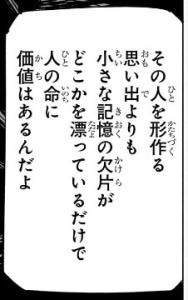 その人を形作る
思い出よりも
小さな記憶の欠片が
どこかを漂っているだけで
人の命に
価値はあるんだよ